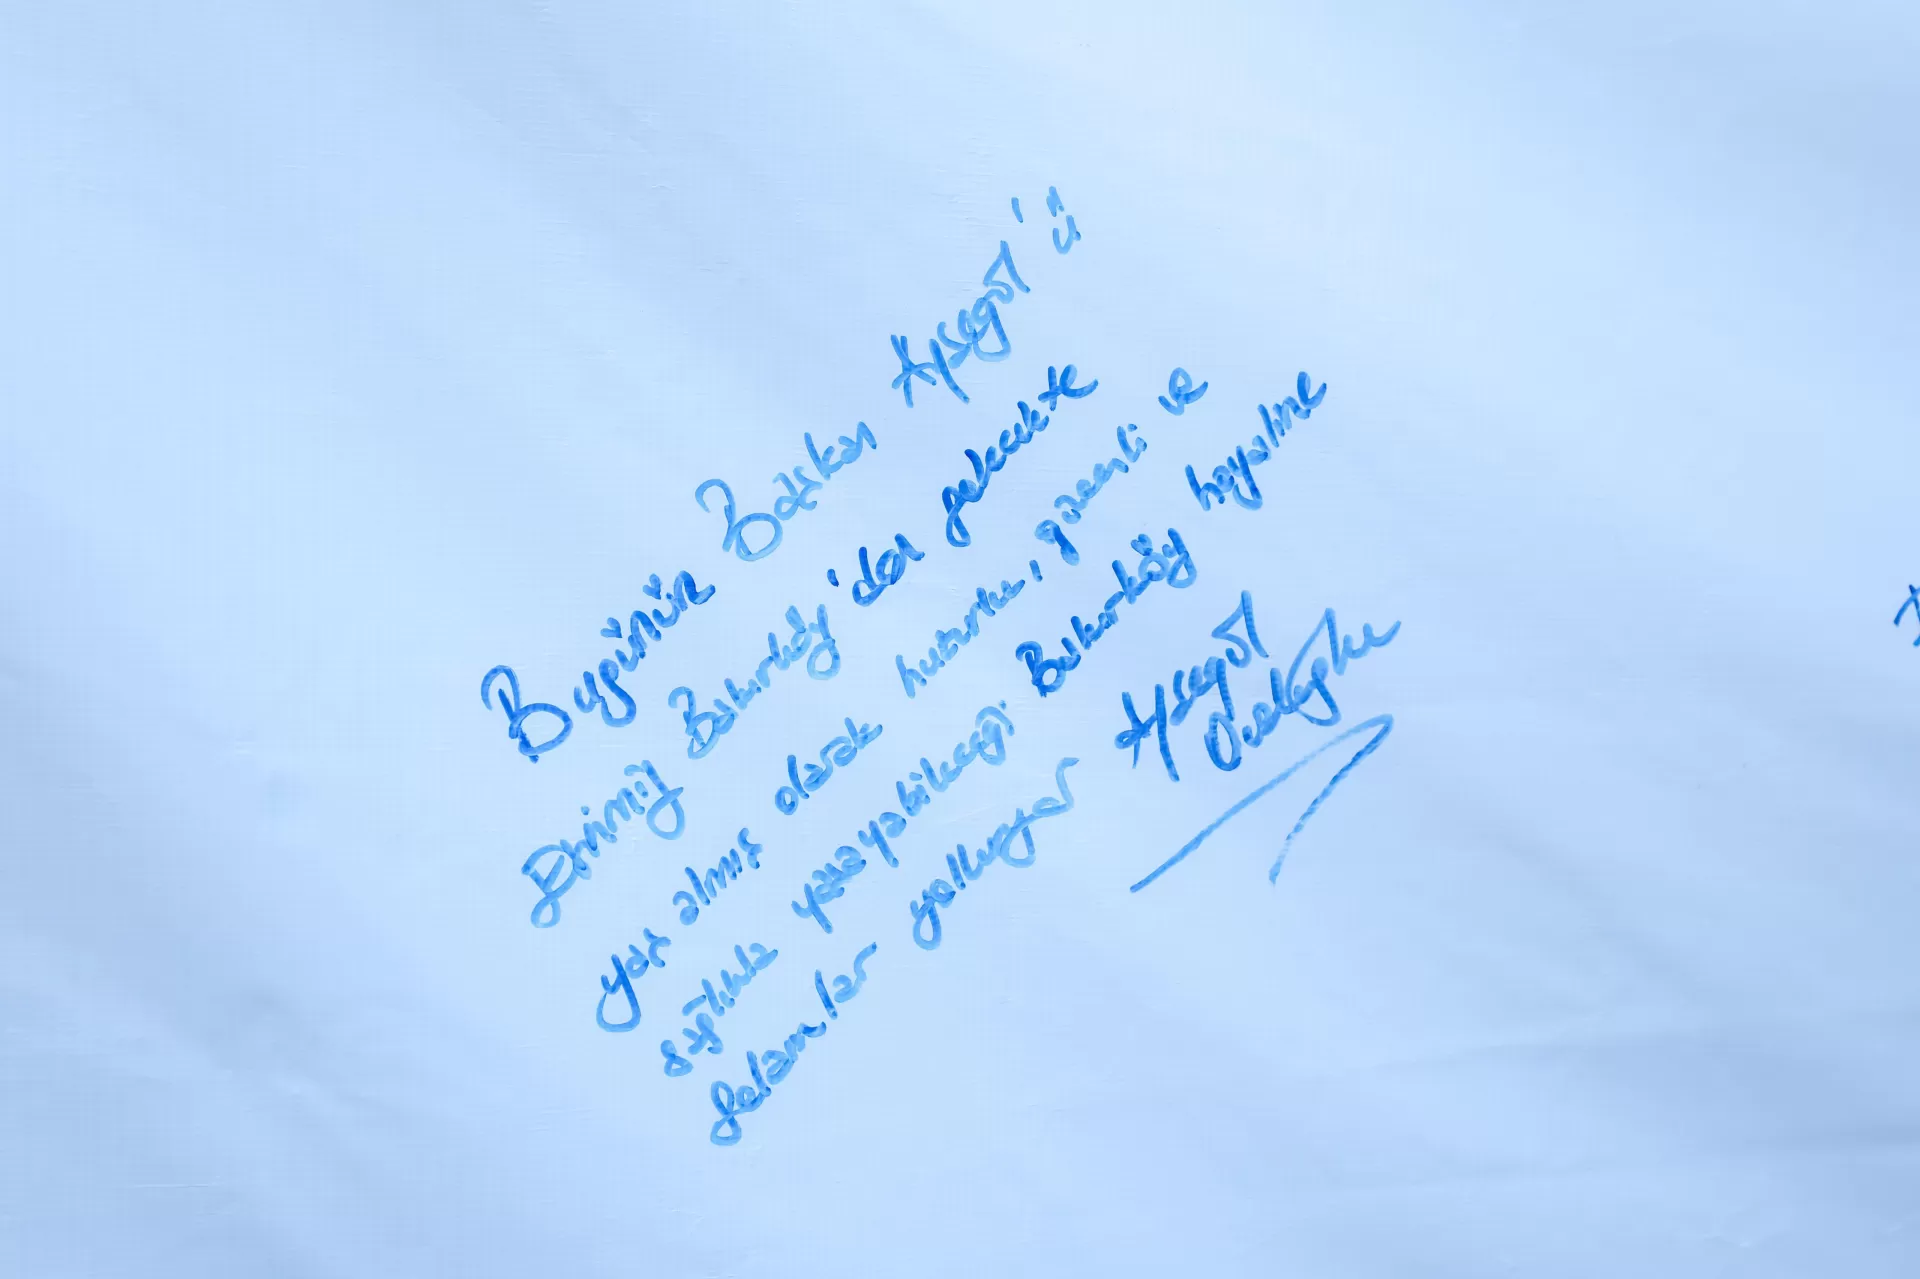 Bugünün Başkan Ayşegül'ü
Şehrimiz Bakırköy'den gelecekte
yaş almış olarak huzurlu, güvenli ve
sağlıkla yaşayabileceği Bakırköy hayaline
selamlar yolluyor
Ayşegül
Ovalıoğlu